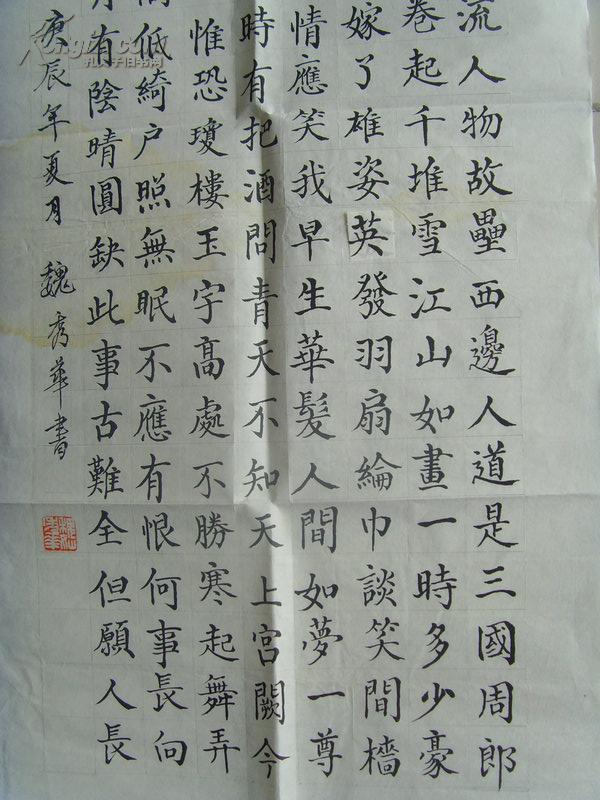 流人物故壘西邊人道是三國周郎
卷起千堆雪江山如畫一時多少豪
嫁了雄姿英發羽扇綸巾談笑間檣
情應笑我早生華髮人間如夢一尊
時有把酒問青天不知天上宮闕今
惟恐瓊樓玉宇高處不勝寒起舞弄
低綺户照無眠不應有恨何事長向
有陰晴圓缺此事古難全但願人長
庚辰年夏月 魏秀華書
孔夫子旧书网